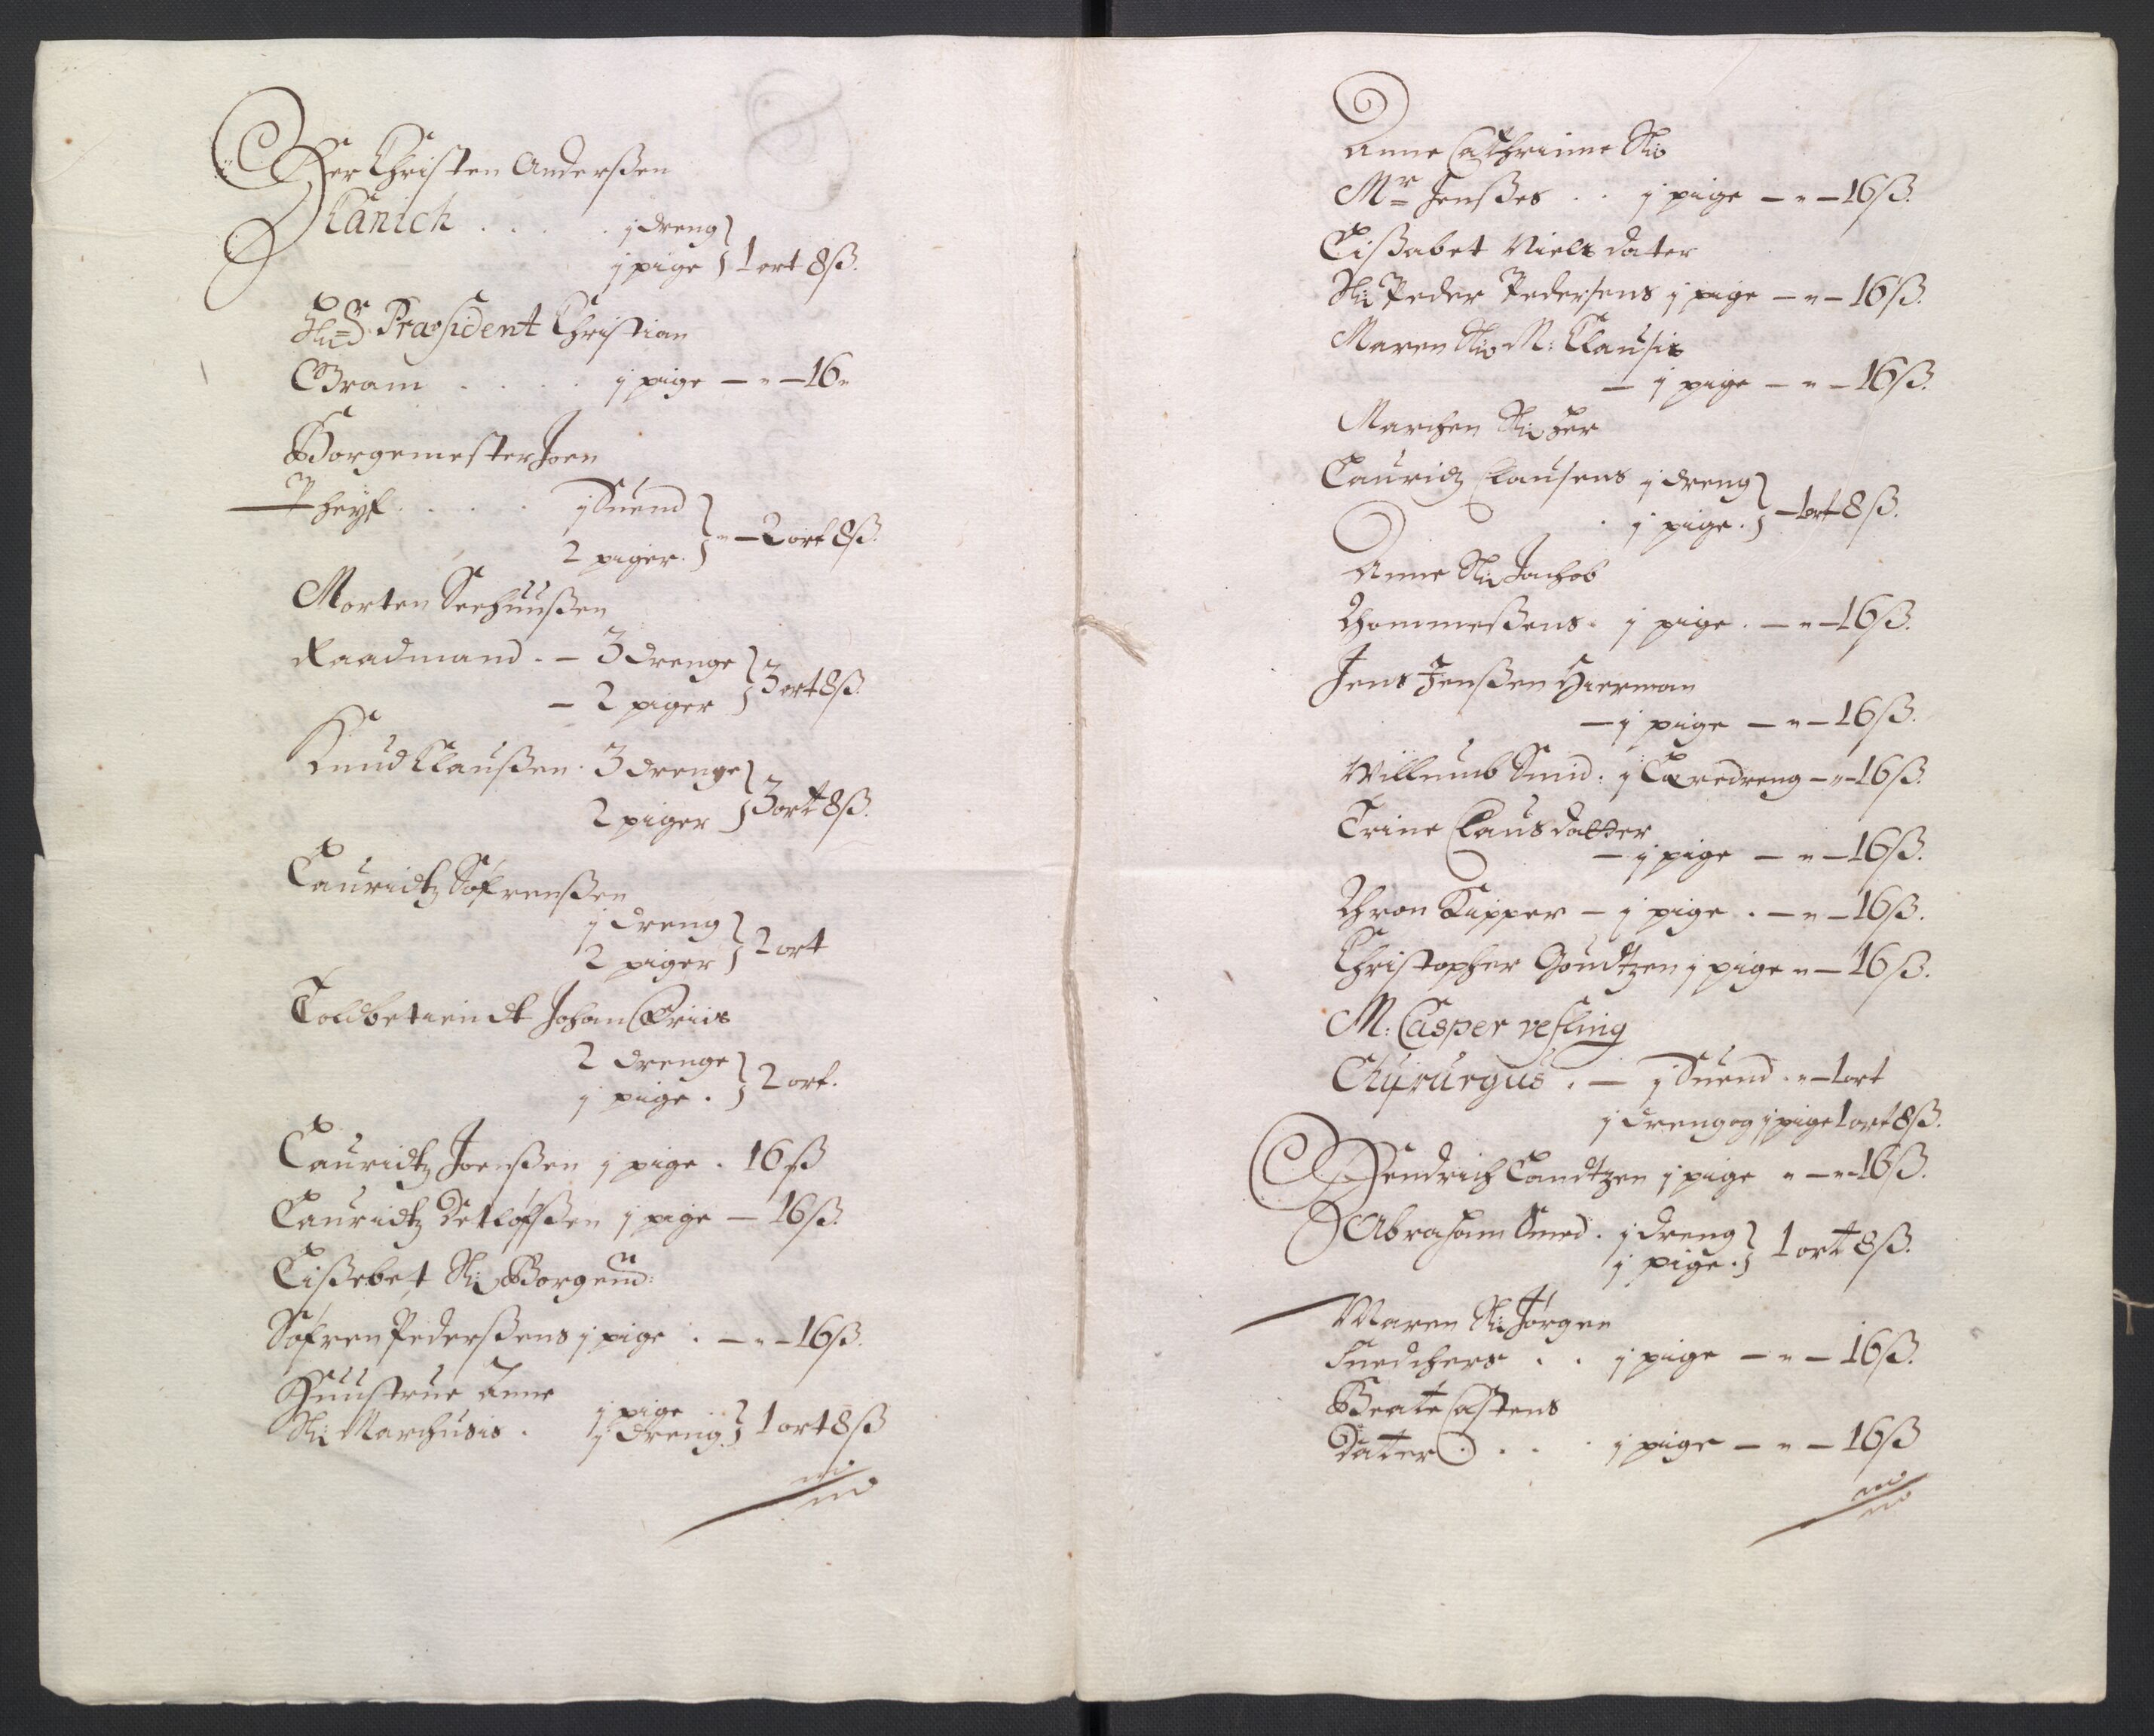 Her Christen Anderßen
Kanich . . . . j dreng
j pige } 1 ort 8 ß.
Sl: Hr Præsident Christian
Bram . . . . j pige — " — 16 "
Borgemester Joen
Theyß . . . . j Suend
2 piger } " — 2 ort 8 ß.
Morten Seehuußen
Raadmand . — 3 drenge
— 2 piger } 3 ort 8 ß.
Knud Claußen . 3 drenge
2 piger } 3 ort 8 ß.
Lauridtz Søfrenßen
j dreng
2 piger } 2 ort
Toldbetiendt Johan Friis
2 drenge
j pige . } 2 ort .
Lauridtz Joenßen j pige . 16 ß
Lauridtz Detløfßen j pige — 16 ß.
Lißebet Sl: Borgem:
Søfren Pederßens j pige . — " — 16 ß.
Huustrue Anne
Sl: Marchusis . j pige
j dreng } 1 ort 8 ß
Anne Cathrinne Sl:
Mr Jenßes . . j pige — " — 16 ß.
Lißabet Niels dater
Sl: Peder Pedersens j pige — " — 16 ß.
Maren Sl: M: Clausis
— j pige — " — 16 ß.
Marchen Sl: Her
Lauridz Clausens j dreng
. j pige . } — 1 ort 8 ß.
Anne Sl: Jachob
Thommeßens . j pige . — " — 16 ß.
Jens Jenßen Hierman
— j pige — " — 16 ß.
Willumb Smid . j Læredreng — " — 16 ß.
Trine Clausdatter
— j pige — " — 16 ß.
Thron Kipper — j pige . — " — 16 ß.
Christopher Goudtzen j pige " — 16 ß.
M: Casper
Chyrurgus . — j Suend . " — 1 ort
j dreng og j pige 1 ort 8 ß.
Hendrich Landtzen j pige " — " — 16 ß.
Abraham Smed . j dreng
j pige . } 1 ort 8 ß.
Maren Sl: Jørgen
Snedchers . . j pige — " — 16 ß.
Beate Castens
Dater . . . j pige — " — 16 ß